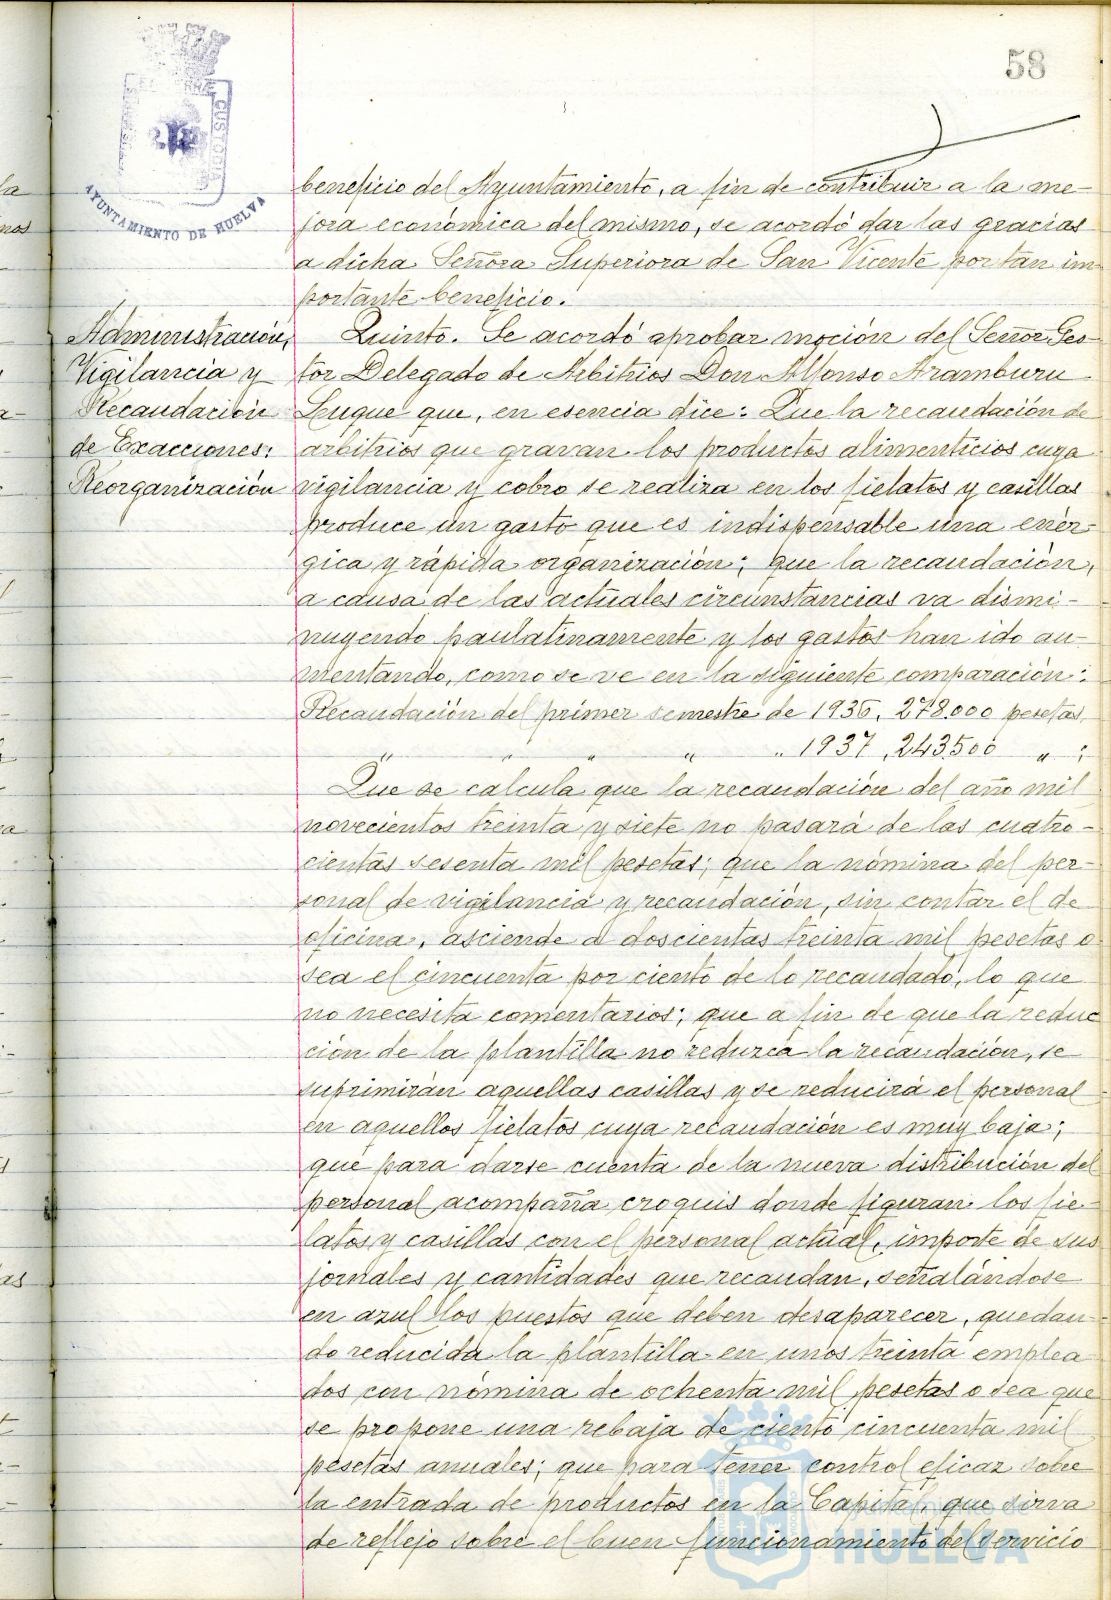 58
AYUNTAMIENTO DE HUELVA
beneficio del Ayuntamiento, a fin de contribuir a la me-
jora económica del mismo, se acordó dar las gracias
a dicha Señora Superiora de San Vicente por tan im-
portante beneficio.
Administración,
Vigilancia y
Recaudación
de Exacciones:
Reorganización
Quinto. Se acordó aprobar moción del Señor Ges-
tor Delegado de Arbitrios Don Alfonso Aramburu
Luque que, en esencia dice: Que la recaudación de
arbitrios que gravan los productos alimenticios cuya
vigilancia y cobro se realiza en los fielatos y casillas
produce un gasto que es indispensable una enér-
gica y rápida organización; que la recaudación,
a causa de las actuales circunstancias va dismi-
nuyendo paulatinamente y los gastos han ido au-
mentando, como se ve en la siguiente comparación:
Recaudación del primer semestre de 1936, 278.000 pesetas,
" " " " " 1937, 243.500 " ;
Que se calcula que la recaudación del año mil
novecientos treinta y siete no pasará de las cuatro-
cientas sesenta mil pesetas; que la nómina del per-
sonal de vigilancia y recaudación, sin contar el de
oficina, asciende a doscientas treinta mil pesetas o
sea el cincuenta por ciento de lo recaudado, lo que
no necesita comentarios; que a fin de que la reduc
ción de la plantilla no reduzca la recaudación, se
suprimirán aquellas casillas y se reducirá el personal
en aquellos fielatos cuya recaudación es muy baja;
que para darse cuenta de la nueva distribución del
personal acompaña croquis donde figuran los fie-
latos y casillas con el personal actual, importe de sus
jornales y cantidades que recaudan, señalándose
en azul los puestos que deben desaparecer, quedan-
do reducida la plantilla en unos treinta emplea
dos con nómina de ochenta mil pesetas o sea que
se propone una rebaja de ciento cincuenta mil
pesetas anuales; que para tener control eficaz sobre
la entrada de productos en la Capital, que sirva
de reflejo sobre el buen funcionamiento del servicio
Ayuntamiento de
HUELVA